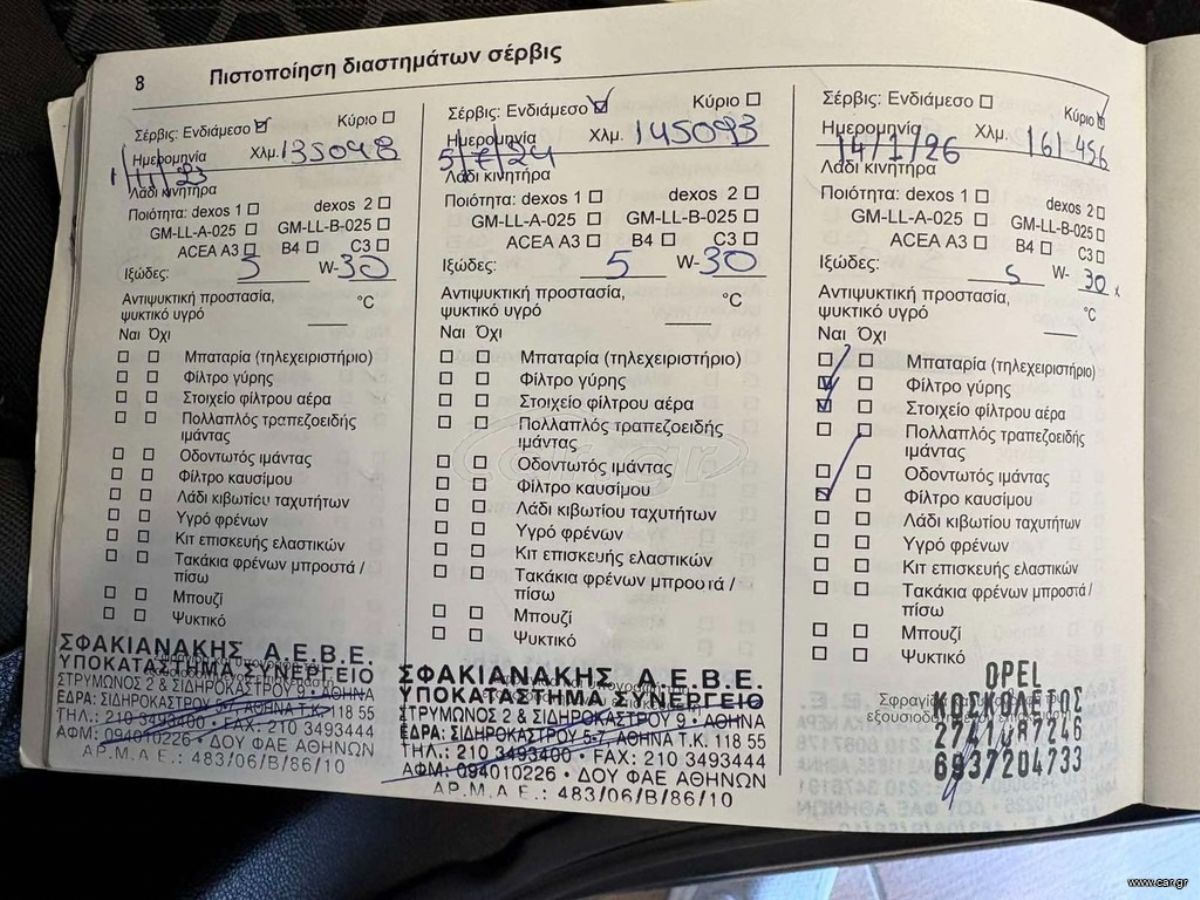 8 Πιστοποίηση διαστημάτων σέρβις
Σέρβις: Ενδιάμεσο Κύριο
Ημερομηνία Χλμ. 135048
1/11/23
Λάδι κινητήρα
Ποιότητα: dexos 1 dexos 2
GM-LL-A-025 GM-LL-B-025
ACEA A3 B4 C3
Ιξώδες: 5 W-30
Αντιψυκτική προστασία,
ψυκτικό υγρό °C
Ναι Όχι
Μπαταρία (τηλεχειριστήριο)
Φίλτρο γύρης
Στοιχείο φίλτρου αέρα
Πολλαπλός τραπεζοειδής
ιμάντας
Οδοντωτός ιμάντας
Φίλτρο καυσίμου
Λάδι κιβωτίου ταχυτήτων
Υγρό φρένων
Κιτ επισκευής ελαστικών
Τακάκια φρένων μπροστά /
πίσω
Μπουζί
Ψυκτικό
ΣΦΑΚΙΑΝΑΚΗΣ Α.Ε.Β.Ε.
ΥΠΟΚΑΤΑΣΤΗΜΑ ΣΥΝΕΡΓΕΙΟ
ΣΤΡΥΜΩΝΟΣ 2 & ΣΙΔΗΡΟΚΑΣΤΡΟΥ 9 • ΑΘΗΝΑ
ΕΔΡΑ: ΣΙΔΗΡΟΚΑΣΤΡΟΥ 5-7, ΑΘΗΝΑ Τ.Κ. 118 55
ΤΗΛ.: 210 3493400 • FAX: 210 3493444
ΑΦΜ: 094010226 • ΔΟΥ ΦΑΕ ΑΘΗΝΩΝ
ΑΡ.Μ.Α Ε.: 483/06/Β/86/10
Σέρβις: Ενδιάμεσο Κύριο
Ημερομηνία Χλμ. 145093
5/7/24
Λάδι κινητήρα
Ποιότητα: dexos 1 dexos 2
GM-LL-A-025 GM-LL-B-025
ACEA A3 B4 C3
Ιξώδες: 5 W-30
Αντιψυκτική προστασία,
ψυκτικό υγρό °C
Ναι Όχι
Μπαταρία (τηλεχειριστήριο)
Φίλτρο γύρης
Στοιχείο φίλτρου αέρα
Πολλαπλός τραπεζοειδής
ιμάντας
Οδοντωτός ιμάντας
Φίλτρο καυσίμου
Λάδι κιβωτίου ταχυτήτων
Υγρό φρένων
Κιτ επισκευής ελαστικών
Τακάκια φρένων μπροστά /
πίσω
Μπουζί
Ψυκτικό
ΣΦΑΚΙΑΝΑΚΗΣ Α.Ε.Β.Ε.
ΥΠΟΚΑΤΑΣΤΗΜΑ ΣΥΝΕΡΓΕΙΟ
ΣΤΡΥΜΩΝΟΣ 2 & ΣΙΔΗΡΟΚΑΣΤΡΟΥ 9 • ΑΘΗΝΑ
ΕΔΡΑ: ΣΙΔΗΡΟΚΑΣΤΡΟΥ 5-7, ΑΘΗΝΑ Τ.Κ. 118 55
ΤΗΛ.: 210 3493400 • FAX: 210 3493444
ΑΦΜ: 094010226 • ΔΟΥ ΦΑΕ ΑΘΗΝΩΝ
ΑΡ.Μ.Α Ε.: 483/06/Β/86/10
Σέρβις: Ενδιάμεσο Κύριο
Ημερομηνία Χλμ. 161456
14/1/26
Λάδι κινητήρα
Ποιότητα: dexos 1 dexos 2
GM-LL-A-025 GM-LL-B-025
ACEA A3 B4 C3
Ιξώδες: 5 W-30
Αντιψυκτική προστασία,
ψυκτικό υγρό °C
Ναι Όχι
Μπαταρία (τηλεχειριστήριο)
Φίλτρο γύρης
Στοιχείο φίλτρου αέρα
Πολλαπλός τραπεζοειδής
ιμάντας
Οδοντωτός ιμάντας
Φίλτρο καυσίμου
Λάδι κιβωτίου ταχυτήτων
Υγρό φρένων
Κιτ επισκευής ελαστικών
Τακάκια φρένων μπροστά /
πίσω
Μπουζί
Ψυκτικό
OPEL
ΚΟΣΚΟΛΕΤΟΣ
2741087246
6937204733
car.gr
www.car.gr